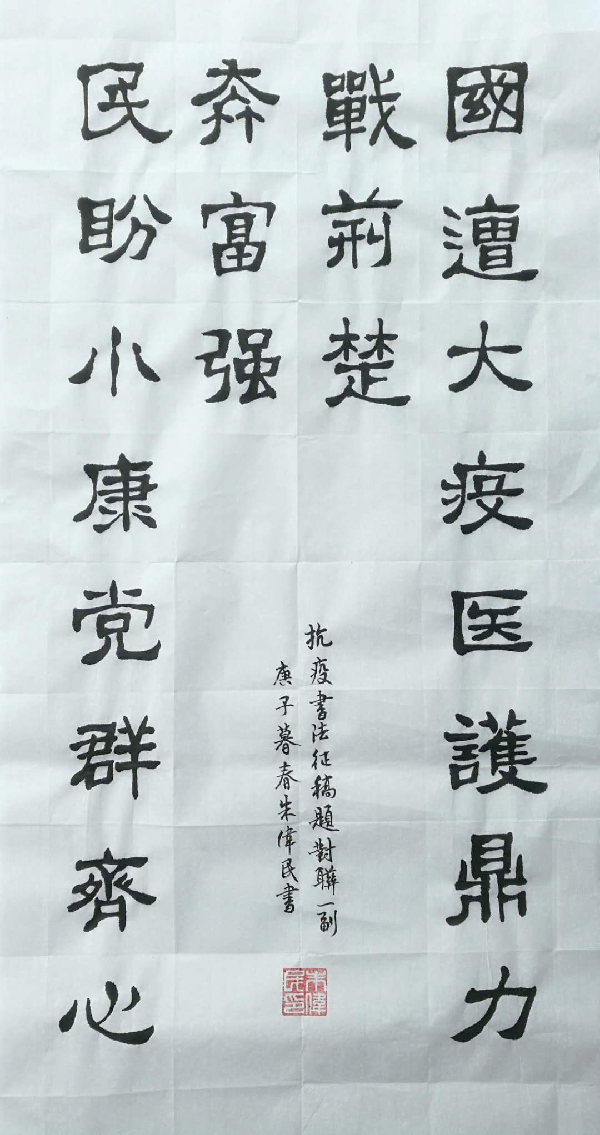 國遭大疫医護鼎力
戰荆楚
民盼小康党群齊心
奔富强
抗疫書法征稿題對聯一副
庚子暮春朱偉民書
朱偉
民印